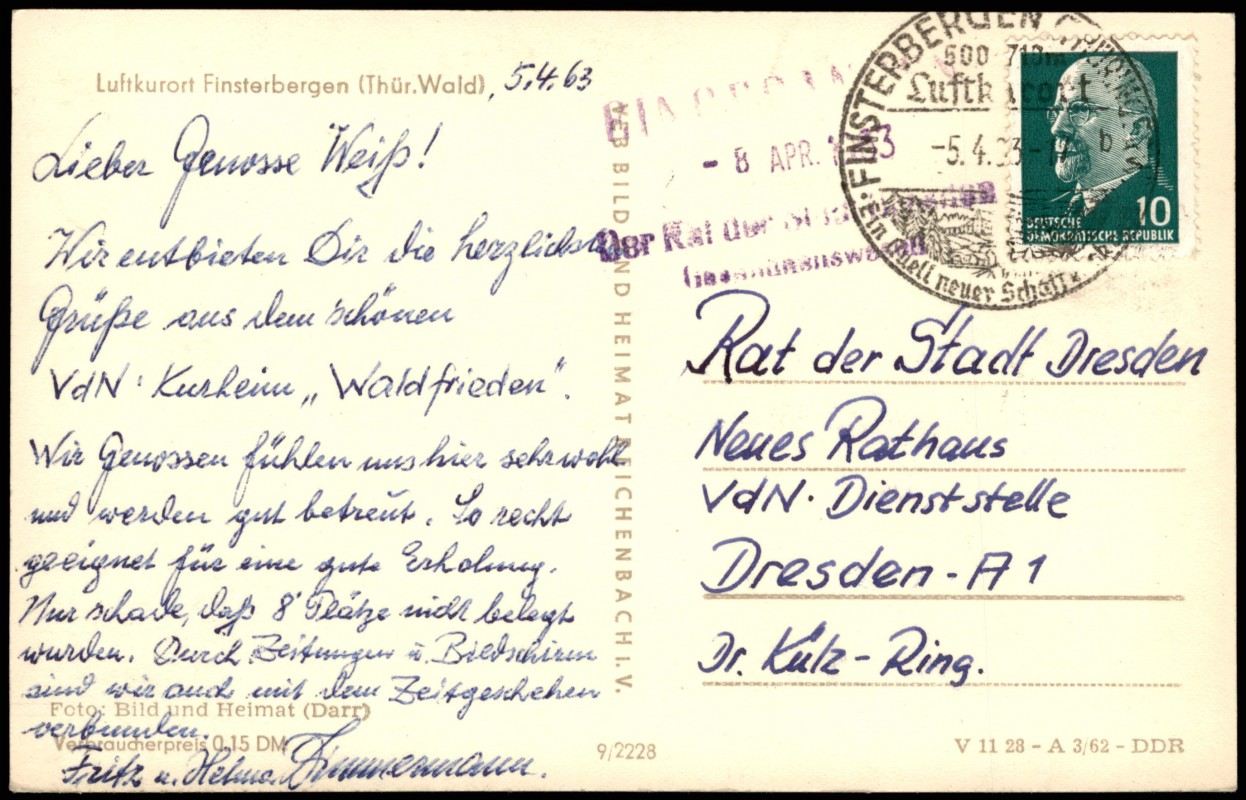 Luftkurort Finsterbergen (Thür.Wald), 5.4.63
Lieber Genosse Weiß!
Wir entbieten Dir die herzlichsten
Grüße aus dem schönen
VdN-Kurheim „Waldfrieden".
Wir Genossen fühlen uns hier sehr wohl
und werden gut betreut. So recht
geeignet für eine gute Erholung.
Nur schade, daß 8 Plätze nicht belegt
wurden. Durch Zeitungen u. Bildschirm
sind wir auch mit dem Zeitgeschehen
verbunden.
Fritz u. Helma Zimmermann.
Foto: Bild und Heimat (Darr)
Verbraucherpreis 0,15 DM
VEB BILD UND HEIMAT REICHENBACH I. V.
9/2228
V 11 28 – A 3/62 – DDR
– 8 APR. 1963
Der Rat der Stadt Dresden
FINSTERBERGEN (THÜRINGEN)
500-710m
Luftkurort
-5.4.63-
b
Ein Quell neuer
10
DEUTSCHE
DEMOKRATISCHE REPUBLIK
Rat der Stadt Dresden
Neues Rathaus
VdN-Dienststelle
Dresden-A1
Dr. Külz-Ring.